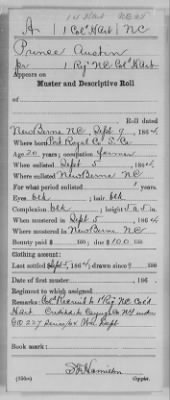 1 st Hart NC 28
A | 1 Col'd H Art | NC
Prince Austin
Pvr, 1 Reg't NC Col'd H Art
Appears on
Muster and Descriptive Roll
of
Roll dated
New Berne NC, Sept 9, 1864
Where born Port Royal Co, S. Ca
Age 20 years; occupation farmer
When enlisted Sept 5, 1864
Where enlisted New Berne NC
For what period enlisted years.
Eyes blk; hair blk
Complexion blk; height 5 ft. 5 in.
When mustered in Sept 5, 1864
Where mustered in New Berne, NC
Bounty paid $ 100; due $ 100
Clothing account:
Last settled Sept 5, 1864; drawn since $ 100
Date of first muster , 186 .
Regiment to which assigned
Remarks: Col'd Recruit to 1 Reg NC Col'd
H Art Credited to NY under
GO 227 War Dept
Book mark:
Hamilton
(356a) Copyist.